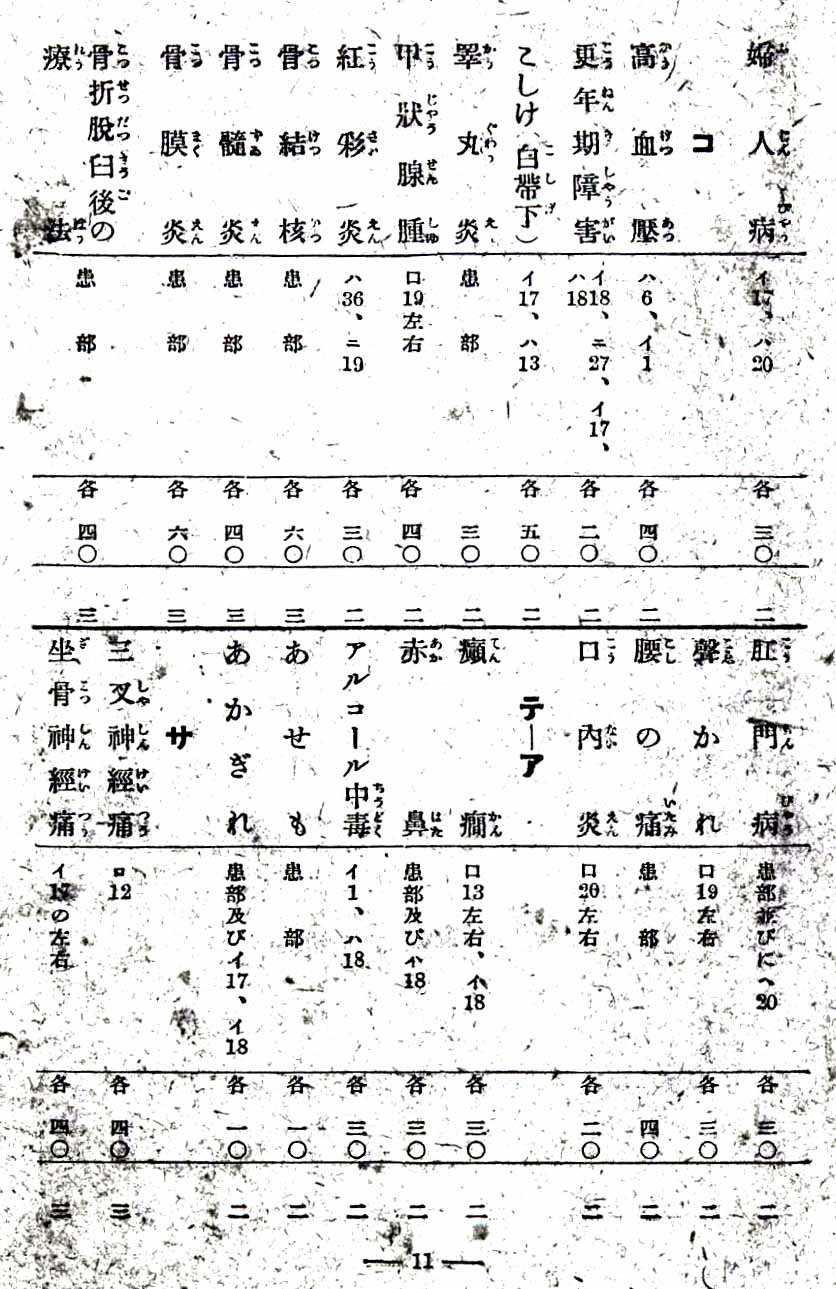 婦人病 イ17、ハ20 各三〇 二
コ
高血壓 ハ6、イ1 各四〇 二
更年期障害 イ18、ニ27、イ17、ハ18 各二〇 二
こしけ(白帶下) イ17、ハ13 各五〇 二
睾丸炎 患部 三〇 二
甲狀腺腫 ロ19左右 各四〇 二
紅彩炎 ハ36、ニ19 各三〇 二
骨結核 患部 各六〇 三
骨髓炎 患部 各四〇 三
骨膜炎 患部 各六〇 三
骨折脫臼後の
療法 患部 各四〇 三
肛門病 患部並びにヘ20 各三〇 二
聲かれ ロ19左右 各三〇 二
腰の痛 患部 四〇 二
口內炎 ロ20左右 各二〇 二
テーア
癲癇 ロ13左右、イ18 各三〇 二
赤鼻 患部及び18 各三〇 二
アルコール中毒 イ1、ハ18 各三〇 二
あせも 患部 各一〇 二
あかぎれ 患部及びイ17、イ18 各一〇 二
サ
三叉神經痛 ロ12 各四〇 三
坐骨神經痛 イ17の左右 各四〇 三
11